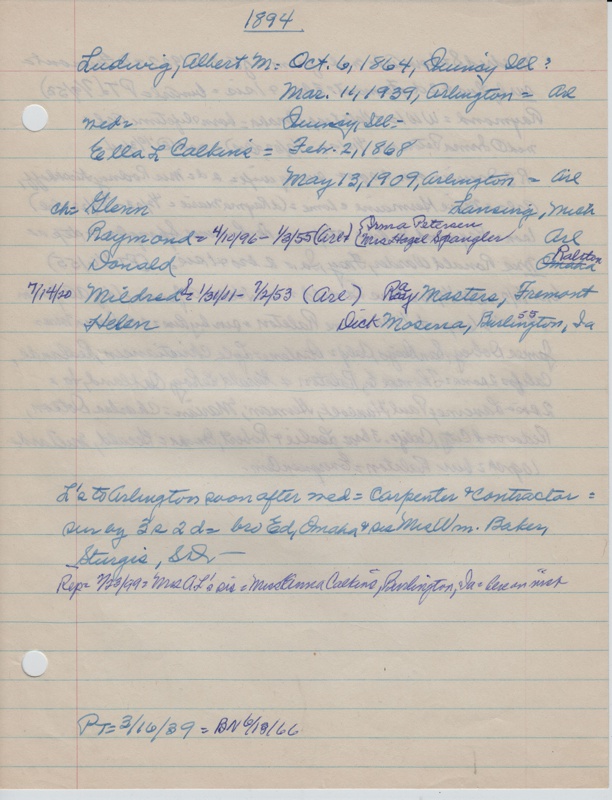 1894
Ludwig, Albert M: Oct. 6, 1864, Quincy Ill?
Mar. 14, 1939, Arlington = Arl
med= Quincy, Ill-
Ella L Calkins = Febr. 2, 1868
May 13, 1909, Arlington = Arl
ch= Glenn Lansing, Mich
Raymond = 4/10/96 - 1/3/55 (Arl) { Irma Petersen Arl
{ Mrs Hazel Spangler
Donald Omaha Ralston
7/14/20 Mildred = 1/31/11 - 7/2/53 (Arl) Ray Masters, Fremont
Helen Dick Moserva, Burlington, Ia
55
L's to Arlington soon after med = Carpenter & Contractor =
sur by 3s 2d = bro Ed, Omaha & sis Mrs Wm. Baker,
Sturgis, S.D. -
Rep = Mrs A L's sis = "Miss Anna Calkins", Burlington, Ia = here on visit
PT= 3/16/39 = BN 6/13/66